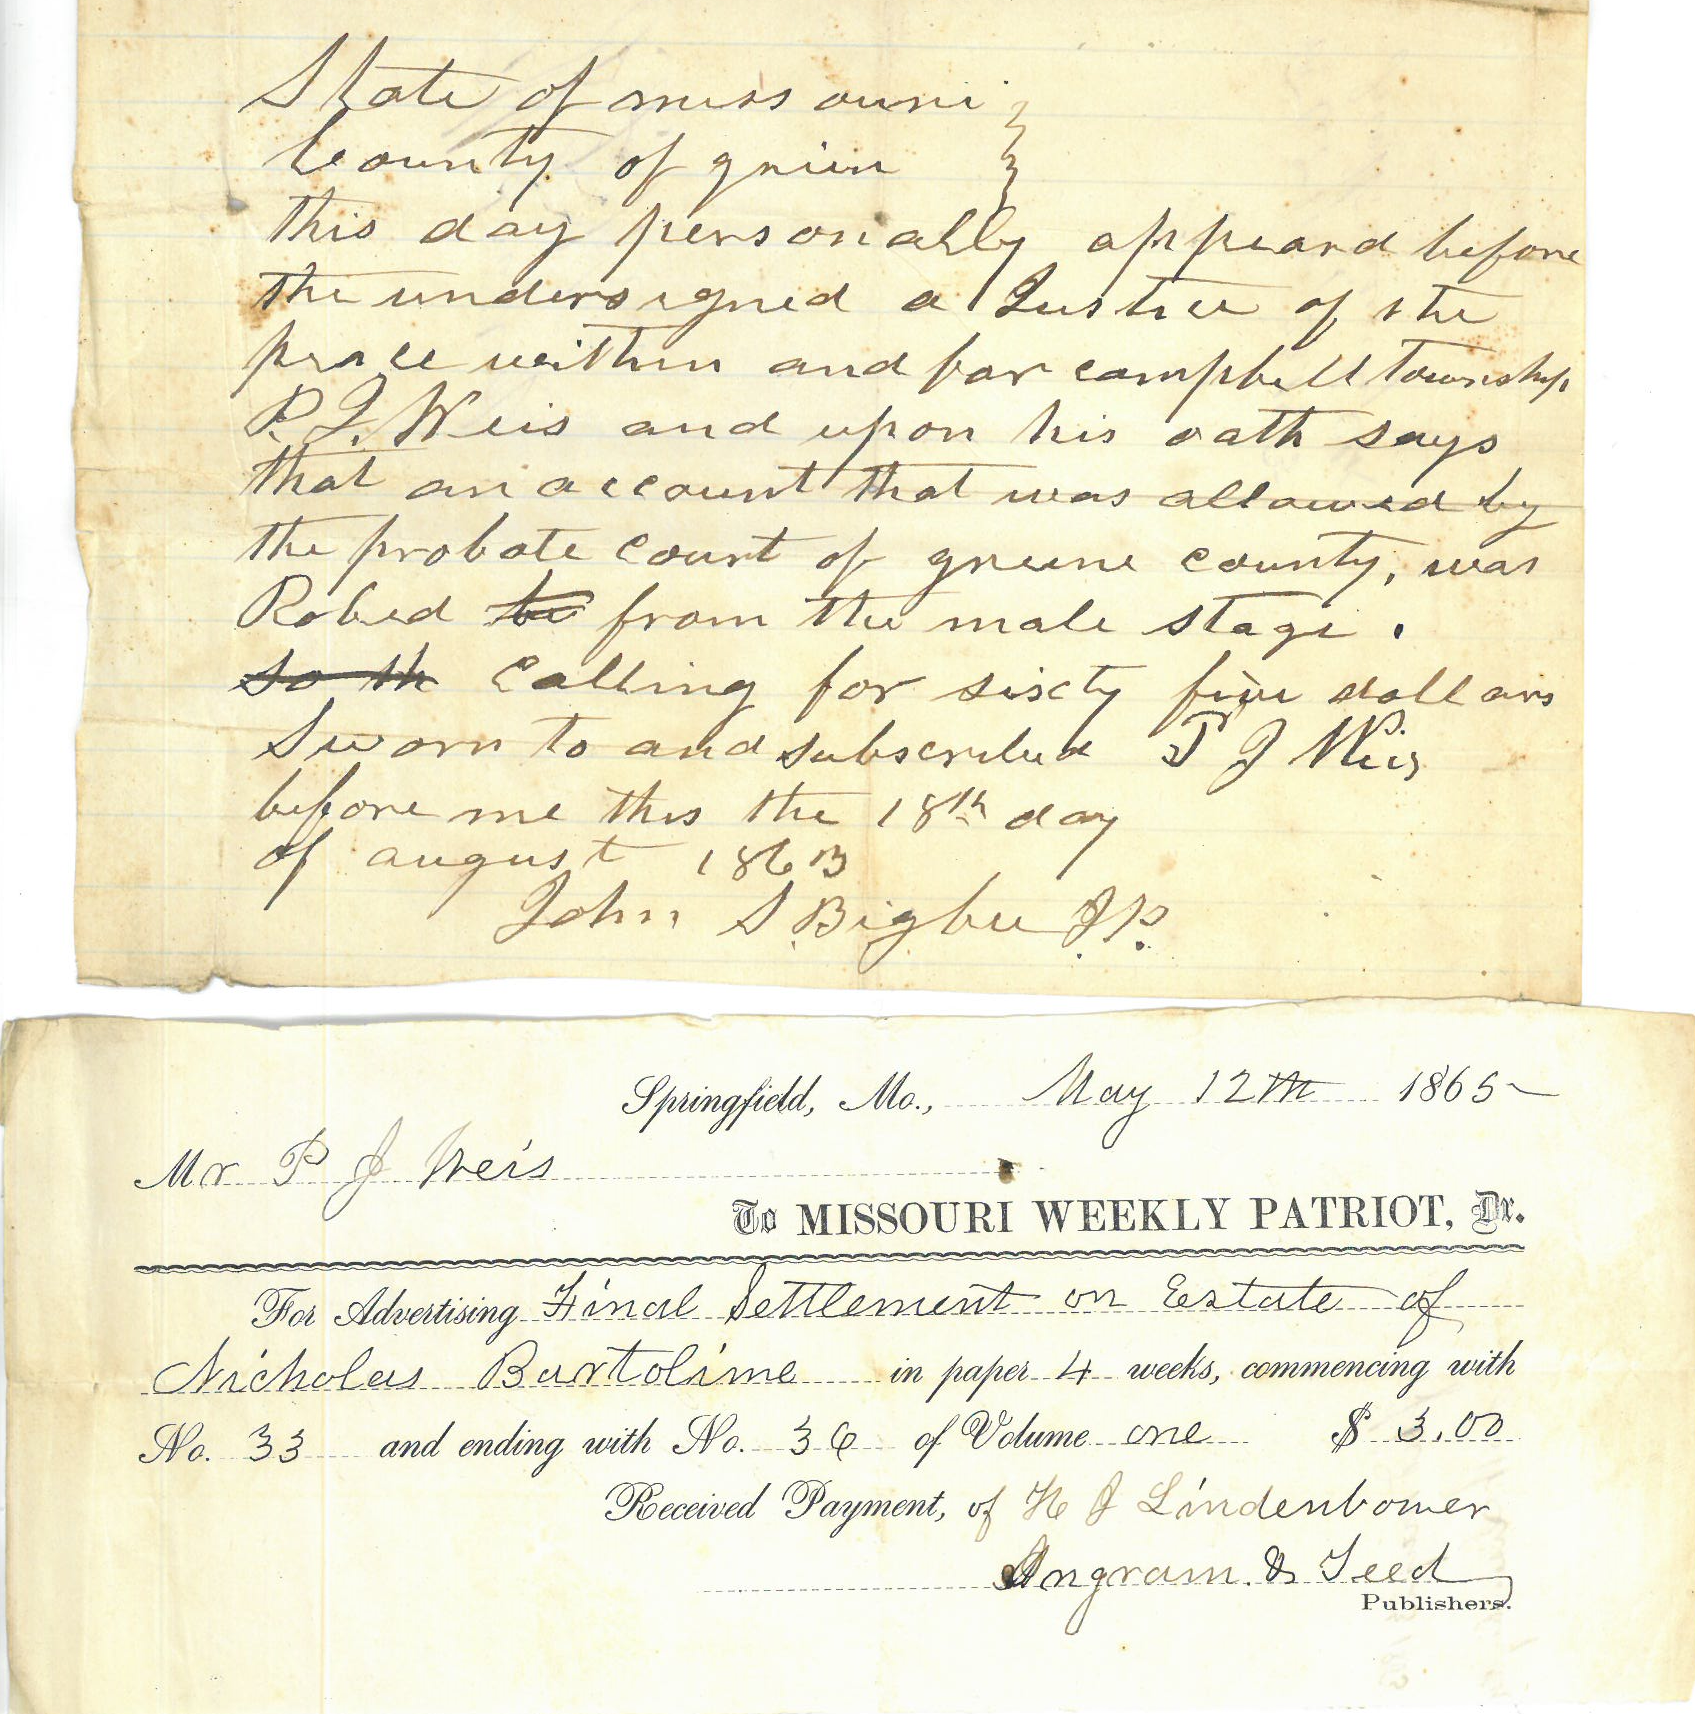 State of missouri
County of griin
this day personally appeard before
the undersigned a Justice of the
peace within and for campbell township
P. J. Weis and upon his oath says
that an account that was allowed by
the probate court of greene county, was
Robed from the male stage.
so th Calling for sixty five dollars
Sworn to and subscribed P J Weis
before me this the 18th day
of august 1863
John S. Bigbee J.P.
Springfield, Mo., May 12th 1865
Mr P J Weis
To MISSOURI WEEKLY PATRIOT, Dr.
For Advertising Final Settlement on Estate of
Nicholas Bartolime in paper 4 weeks, commencing with
No. 33 and ending with No. 36 of Volume one $ 3.00
Received Payment, of H J Lindenbower
Ingram & Teed
Publishers.